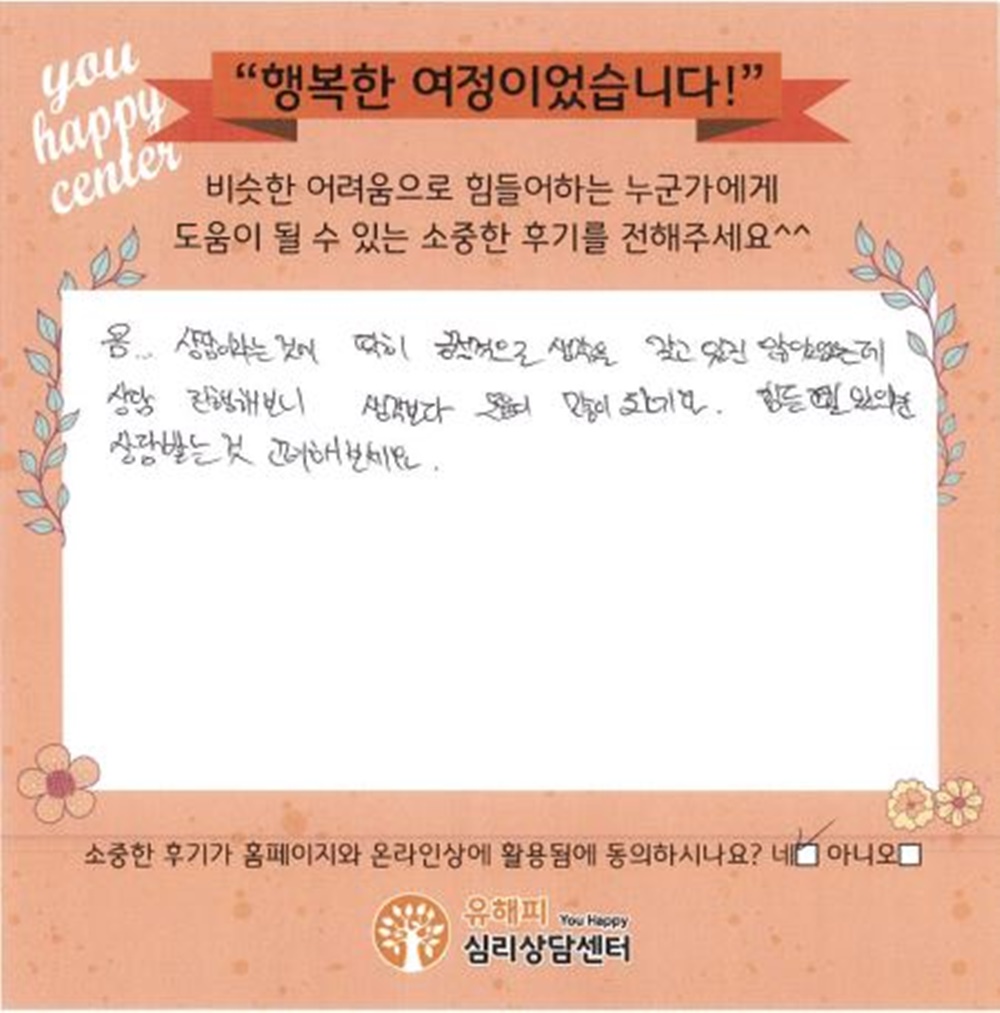 you
happy
center
“행복한 여정이었습니다!”
비슷한 어려움으로 힘들어하는 누군가에게
도움이 될 수 있는 소중한 후기를 전해주세요^^
음... 상담이라는 것에 딱히 긍정적으로 생각을 갖고 있진 않았었는데
상담 진행해보니 생각보다 도움이 많이 되네요. 힘든 일 있으면
상담받는 것 고려해보세요.
소중한 후기가 홈페이지와 온라인상에 활용됨에 동의하시나요? 네 아니오
유해피 You Happy
심리상담센터